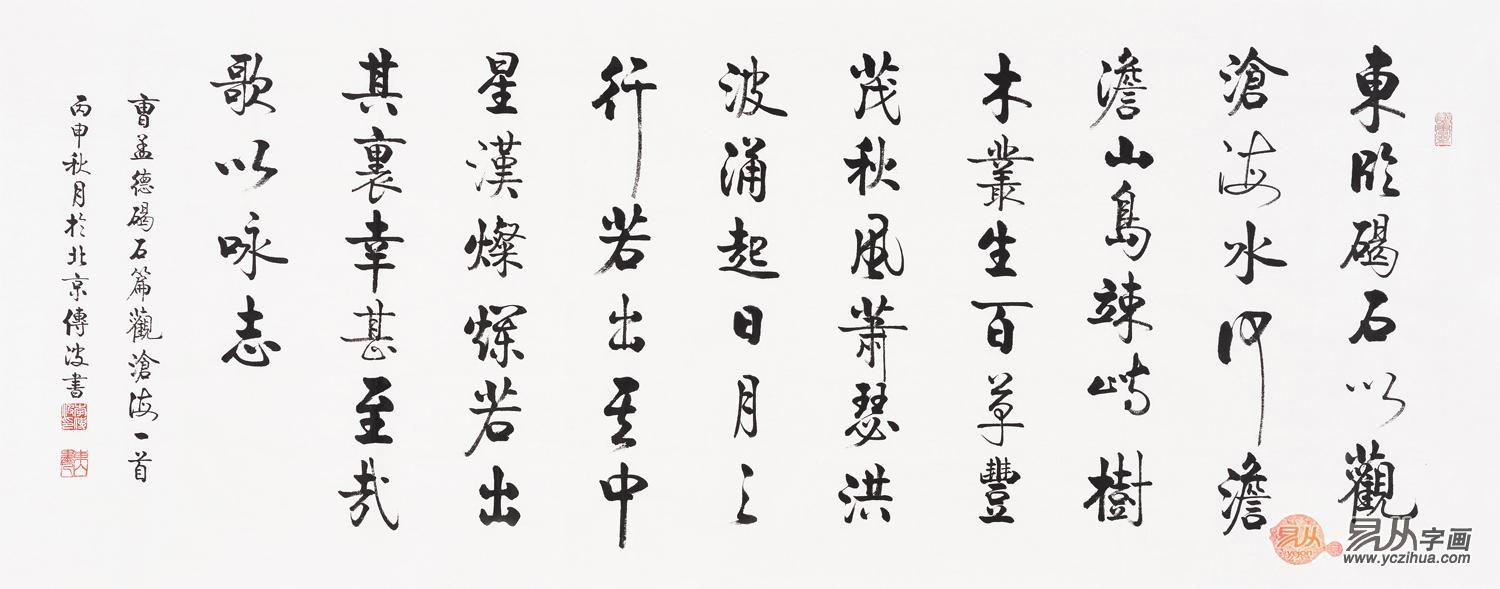 東臨碣石以觀
滄海水何澹
澹山島竦峙樹
木叢生百草豐
茂秋風蕭瑟洪
波涌起日月之
行若出其中
星漢燦爛若出
其裏幸甚至哉
歌以咏志
曹孟德碣石篇觀滄海一首
丙申秋月於北京傳波書
易从
易从字画
www.yczihua.com